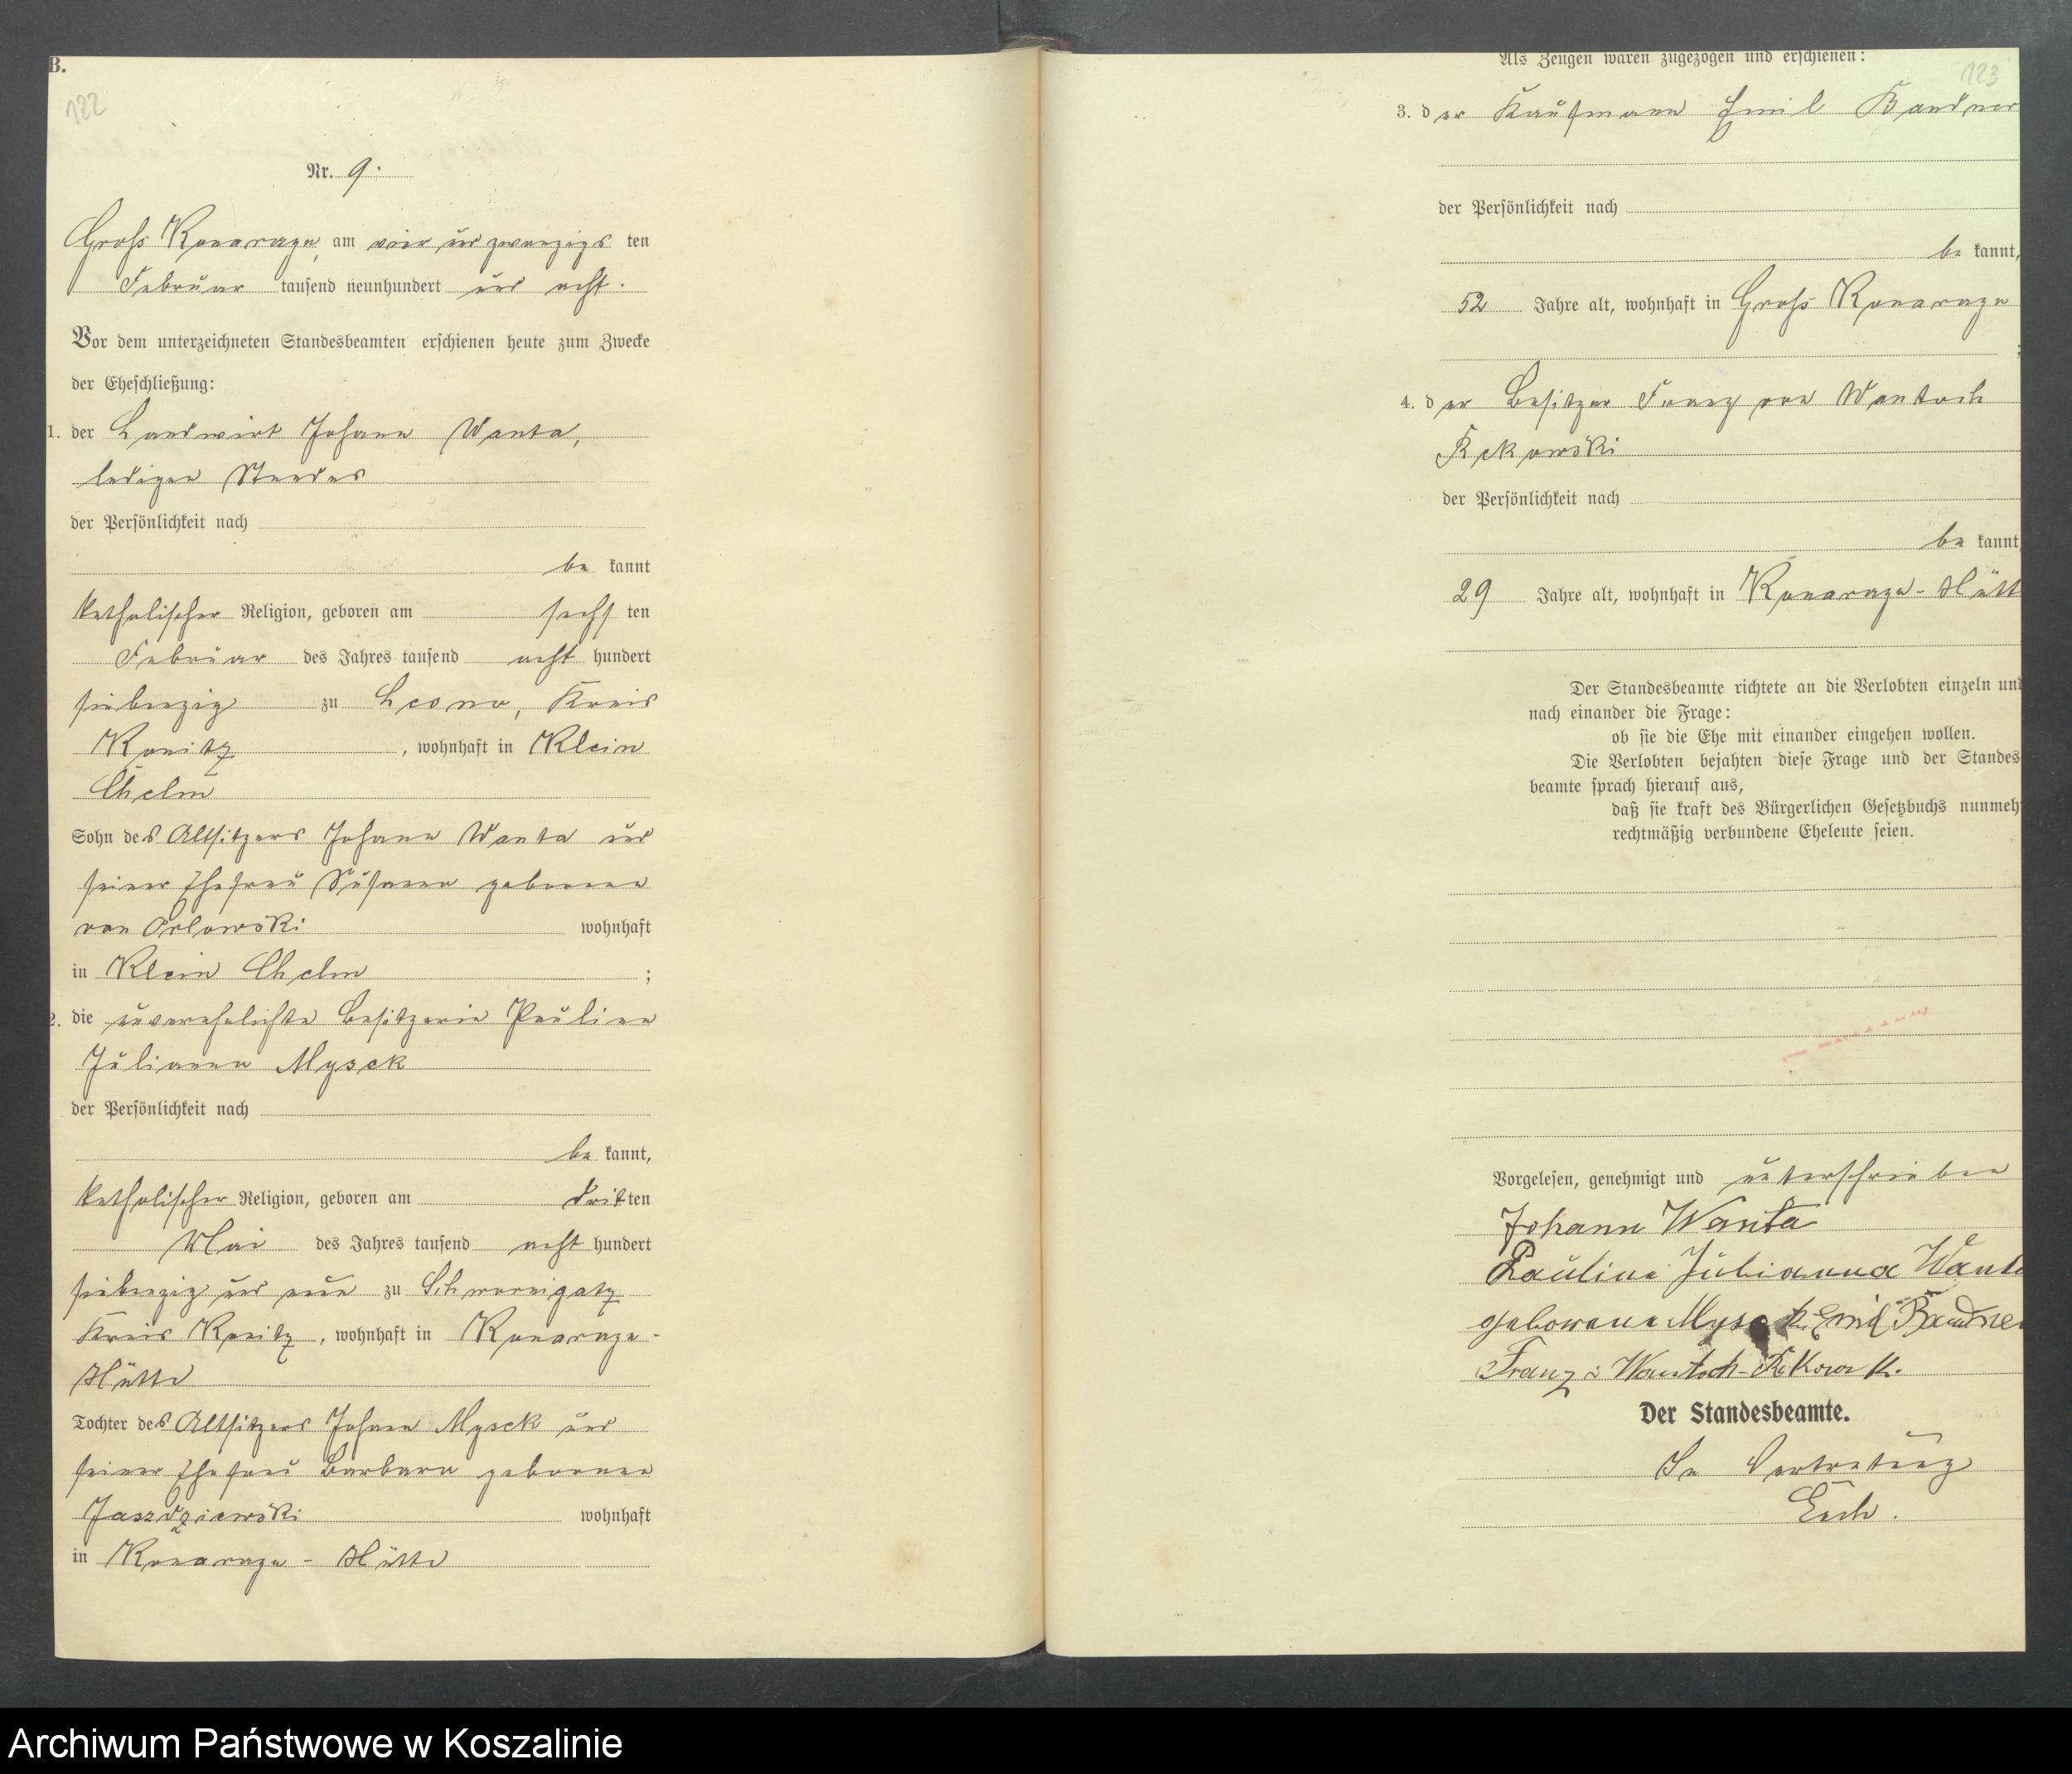 B.
122
Nr. 9.
Groß Konarzyn, am vier und zwanzigs ten
Februar tausend neunhundert und acht.
Vor dem unterzeichneten Standesbeamten erschienen heute zum Zwecke
der Eheschließung:
1. der Landwirt Johann Wanta,
ledigen Standes
der Persönlichkeit nach
be kannt
katholischer Religion, geboren am sechs ten
Februar des Jahres tausend acht hundert
siebenzig zu Lesno, Kreis
Konitz, wohnhaft in Klein
Chelm
Sohn des Altsitzers Johann Wanta und
seiner Ehefrau Susanna geborenen
von Orlowski wohnhaft
in Klein Chelm ;
2. die unverehelichte Besitzerin Pauline
Julianna Mysek
der Persönlichkeit nach
be kannt,
katholischer Religion, geboren am drit ten
Mai des Jahres tausend acht hundert
siebenzig und neun zu Schwornigatz
Kreis Konitz, wohnhaft in Konarzyn-
Hütte
Tochter des Altsitzers Johann Mysek und
seiner Ehefrau Barbara geborenen
Jaszdziewski wohnhaft
in Konarzyn - Hütte
Als Zeugen waren zugezogen und erschienen:
123
3. der Kaufmann Emil Bandner
der Persönlichkeit nach
be kannt,
52 Jahre alt, wohnhaft in Groß Konarzyn
;
4. der Besitzer Franz von Wantoch
Rekowski
der Persönlichkeit nach
be kannt
29 Jahre alt, wohnhaft in Konarzyn-Hütt
Der Standesbeamte richtete an die Verlobten einzeln und
nach einander die Frage:
ob sie die Ehe mit einander eingehen wollen.
Die Verlobten bejahten diese Frage und der Standes
beamte sprach hierauf aus,
daß sie kraft des Bürgerlichen Gesetzbuchs nunmeh
rechtmäßig verbundene Eheleute seien.
Vorgelesen, genehmigt und unterschrieben
Johann Wanta
Pauline Julianna Wanta
geborene Mysek Emil Bandner
Franz v Wantoch-Rekowsk.
Der Standesbeamte.
In Vertretung
Archiwum Państwowe w Koszalinie